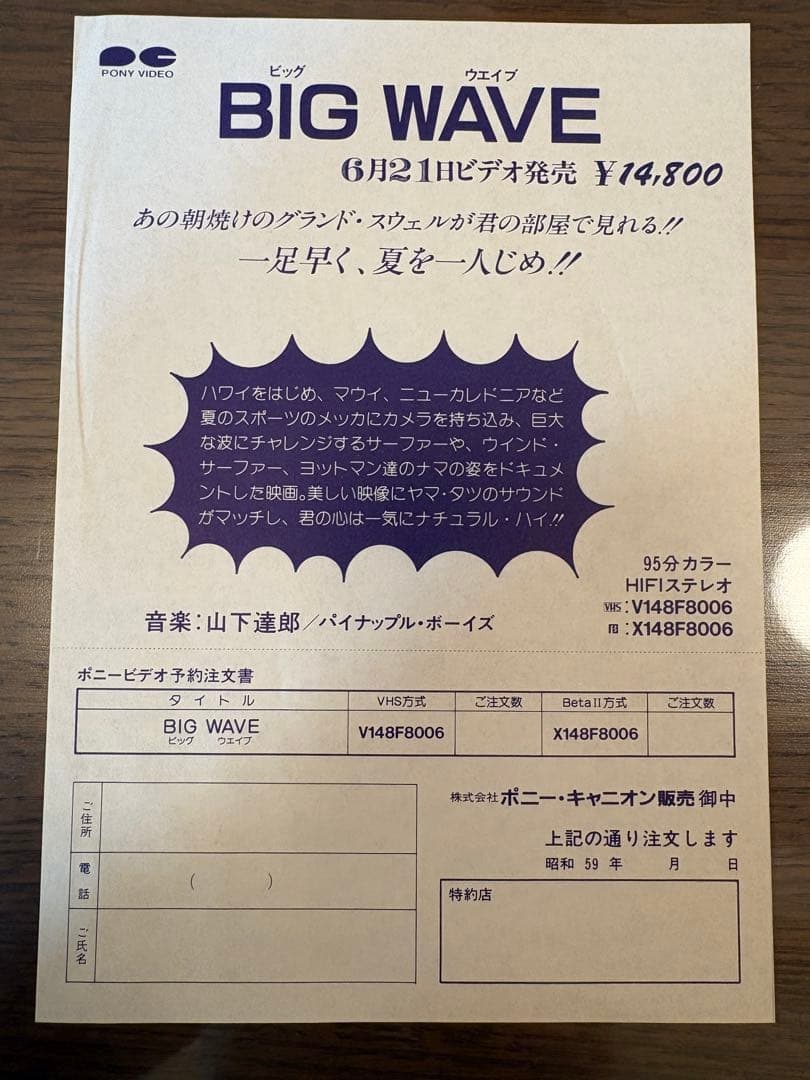 PONY VIDEO
ビッグ ウエイブ
BIG WAVE
6月21日ビデオ発売 ¥14,800
あの朝焼けのグランド・スウェルが君の部屋で見れる!!
一足早く、夏を一人じめ!!
ハワイをはじめ、マウイ、ニューカレドニアなど
夏のスポーツのメッカにカメラを持ち込み、巨大
な波にチャレンジするサーファーや、ウインド・
サーファー、ヨットマン達のナマの姿をドキュメ
ントした映画。美しい映像にヤマ・タツのサウンド
がマッチし、君の心は一気にナチュラル・ハイ!!
95分カラー
HIFIステレオ
VHS:V148F8006
:X148F8006
音楽:山下達郎/パイナップル・ボーイズ
ポニービデオ予約注文書
タイトル VHS方式 ご注文数 BetaII方式 ご注文数
BIG WAVE V148F8006 X148F8006
ビッグ ウエイブ
株式会社 ポニー・キャニオン販売 御中
上記の通り注文します
昭和 59 年 月 日
特約店
ご住所
電話 ( )
ご氏名